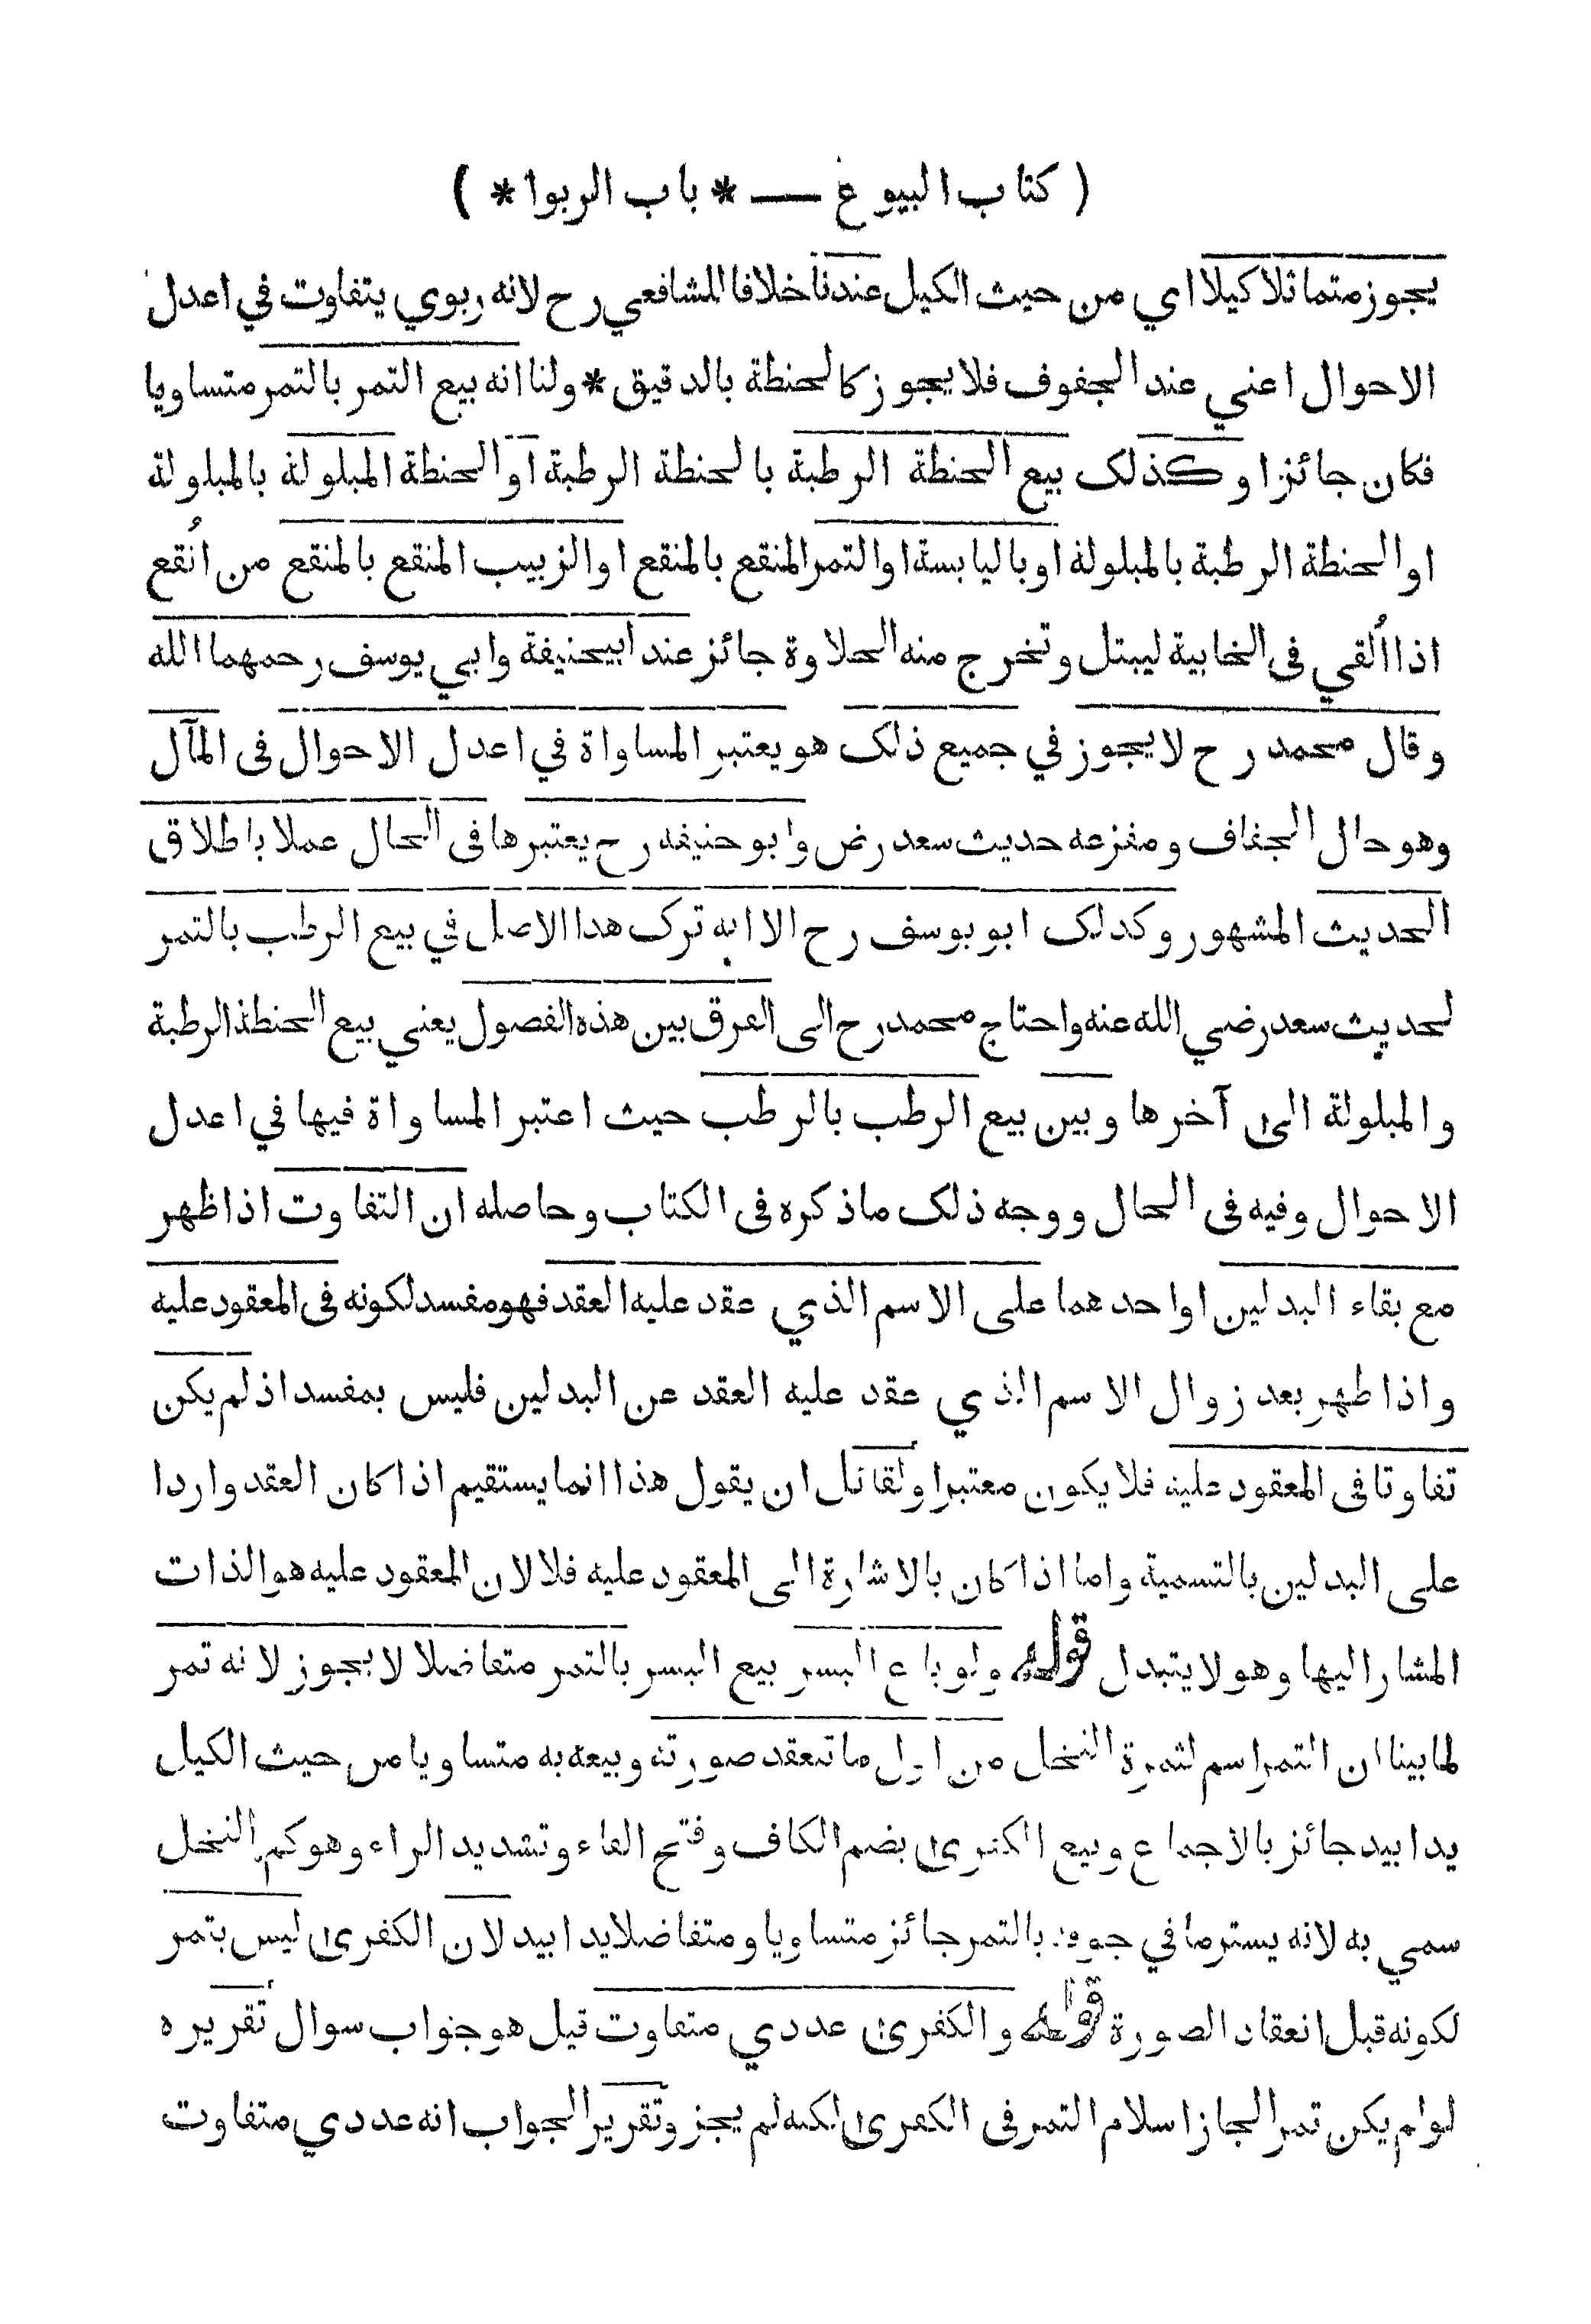 ( كتاب البيوع — * باب الربوا * )
يجوز متماثلا كيلا اي من حيث الكيل عندنا خلافا للشافعي رح لانه ربوي يتفاوت في اعدل
الاحوال اعني عند الجفوف فلا يجوز كالحنطة بالدقيق * ولنا انه بيع التمر بالتمر متساويا
فكان جائزا وكذلك بيع الحنطة الرطبة بالحنطة الرطبة او الحنطة المبلولة بالمبلولة
او الحنطة الرطبة بالمبلولة او باليابسة او التمر المنقع بالمنقع او الزبيب المنقع بالمنقع من اُنقع
اذا اُلقي فى الخابية ليبتل وتخرج منه الحلاوة جائز عند ابيحنيفة وابي يوسف رحمهما الله
وقال محمد رح لا يجوز في جميع ذلك هو يعتبر المساواة في اعدل الاحوال فى المآل
وهو حال الجفاف ومفزعه حديث سعد رض وابو حنيفه رح يعتبرها فى الحال عملا باطلاق
الحديث المشهور وكذلك ابو يوسف رح الا انه ترك هذا الاصل في بيع الرطب بالتمر
لحديث سعد رضي الله عنه واحتاج محمد رح الى الفرق بين هذه الفصول يعني بيع الحنطة الرطبة
والمبلولة الى آخرها وبين بيع الرطب بالرطب حيث اعتبر المساواة فيها في اعدل
الاحوال وفيه فى الحال ووجه ذلك ماذكره فى الكتاب وحاصله ان التفاوت اذا ظهر
مع بقاء البدلين او احدهما على الاسم الذي عقد عليه العقد فهو مفسد لكونه فى المعقود عليه
واذا ظهر بعد زوال الاسم الذي عقد عليه العقد عن البدلين فليس بمفسد اذ لم يكن
تفاوتا فى المعقود عليه فلا يكون معتبرا ولقائل ان يقول هذا انما يستقيم اذا كان العقد واردا
على البدلين بالتسمية واما اذا كان بالاشارة الى المعقود عليه فلا لان المعقود عليه هو الذات
المشار اليها وهو لا يتبدل قوله ولو باع البسر بيع البسر بالتمر متفاضلا لا يجوز لانه تمر
لما بينا ان التمر اسم لثمرة النخل من اول ما تنعقد صورته وبيعه به متساويا من حيث الكيل
يدا بيد جائز بالاجماع وبيع الكفرى بضم الكاف وفتح الفاء وتشديد الراء وهو كم النخل
سمي به لانه يستر ما في جوفه بالتمر جائز متساويا ومتفاضلا يدا بيد لان الكفرى ليس بتمر
لكونه قبل انعقاد الصورة قوله والكفرى عددي متفاوت قيل هو جواب سوال تقريره
لو لم يكن تمرا لجاز اسلام التمر فى الكفرى لكنه لم يجز وتقرير الجواب انه عددي متفاوت